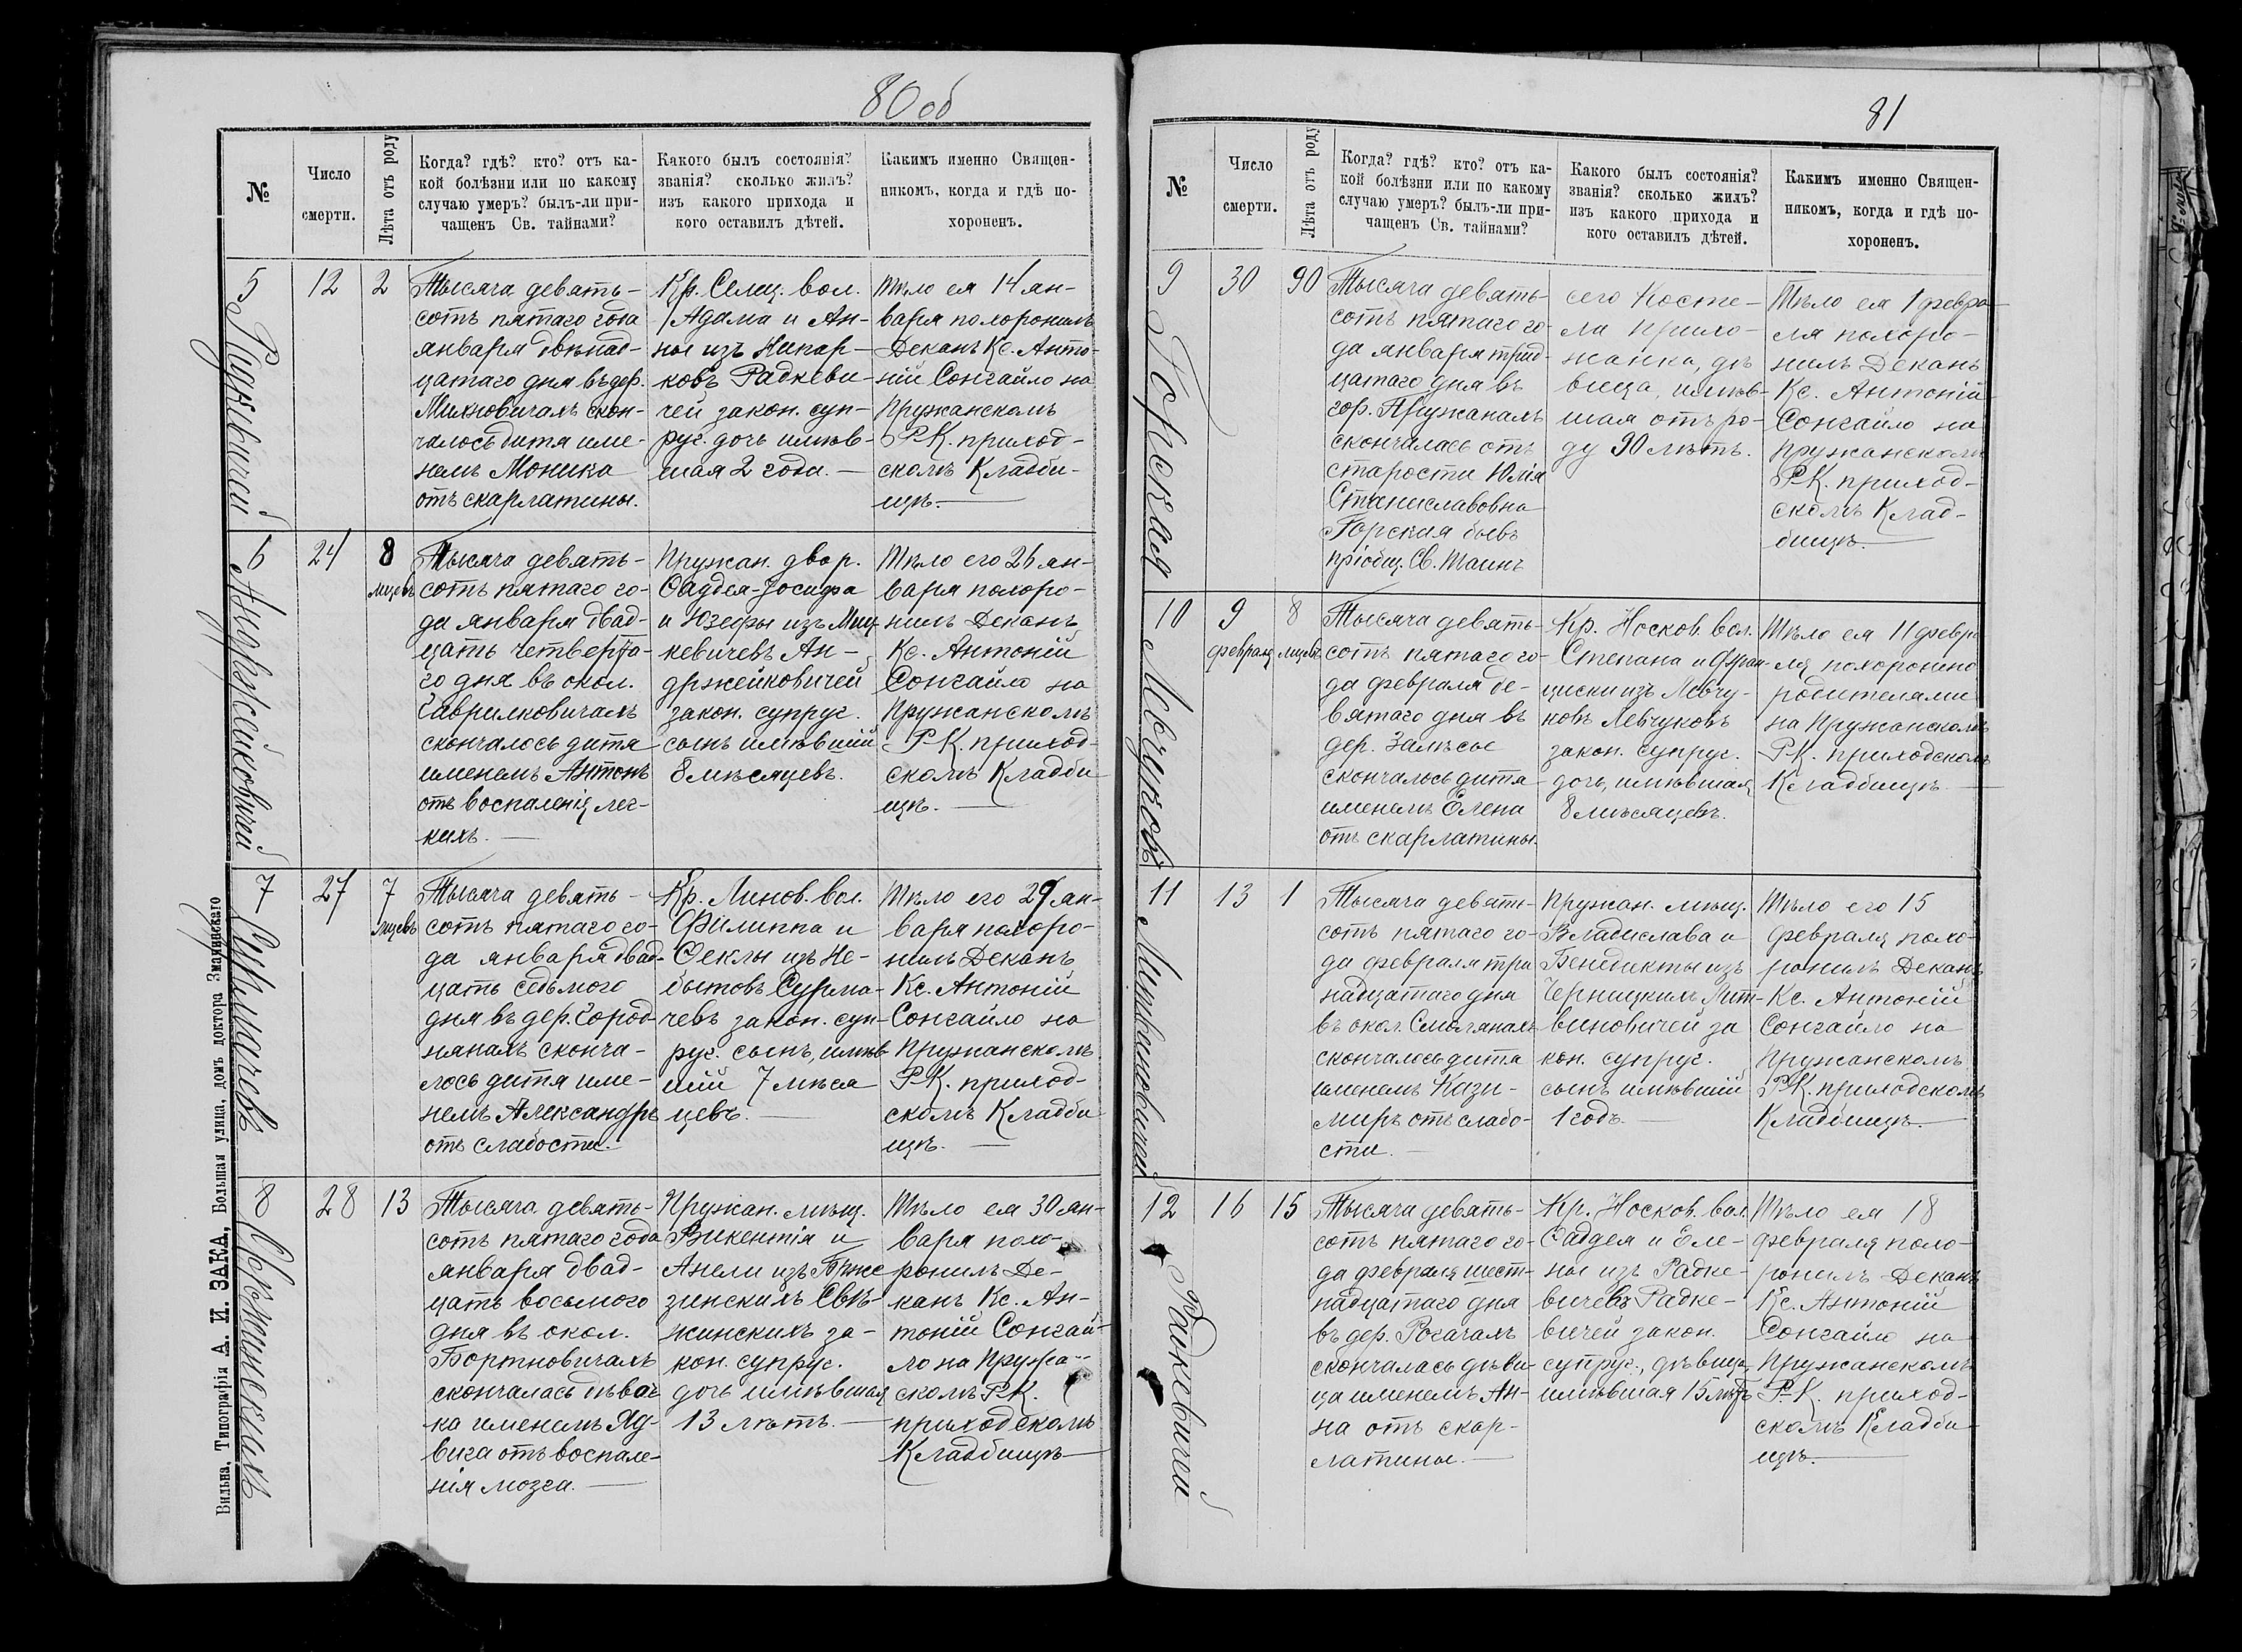 80 об
№
Число
смерти.
Лѣта отъ роду
Когда? гдѣ? кто? отъ ка-
кой болѣзни или по какому
случаю умеръ? былъ-ли при-
чащенъ Св. тайнами?
Какого былъ состоянія?
званія? сколько жилъ?
изъ какого прихода и
кого оставилъ дѣтей.
Какимъ именно Священ-
никомъ, когда и гдѣ по-
хороненъ.
5
Радкевичей
12
2
Тысяча девять-
сотъ пятаго года
января двѣнад-
цатаго дня въ дер.
Михновичахъ скон-
чалось дитя име-
немъ Моника
отъ скарлатины.
Кр. Селец. вол.
Адама и Ан-
ны изъ
Радкеви-
чей закон. суп-
руг. дочь имѣв-
шая 2 года. —
Тѣло ея 14 ян-
варя похоронилъ
Деканъ Кс. Анто-
ній Сонгайло на
Пружанскомъ
Р-К. приход-
скомъ Кладби-
щѣ. —
6
Андржейковичей
24
8
мцевъ
Тысяча девять-
сотъ пятаго го-
да января двад-
цать четверта-
го дня въ окол.
Гаврилковичахъ
скончалось дитя
именемъ Антонъ
отъ воспаленія лег-
кихъ. —
Пружан. двор.
Фаддея-Іосифа
и Юзефы изъ Миц-
кевичевъ Ан-
држейковичей
закон. супруг.
сынъ имѣвшій
8 мѣсяцевъ.
Тѣло его 26 ян-
варя похоро-
нилъ Деканъ
Кс. Антоній
Сонгайло на
Пружанскомъ
Р-К. приход-
скомъ Кладби
щѣ. —
7
Сурмачевъ
27
7
мцевъ
Тысяча девять-
сотъ пятаго го-
да января двад-
цать седьмого
дня въ дер. Город-
нянахъ сконча-
лось дитя име-
немъ Александръ
отъ слабости. —
Кр. Линов. вол.
Филиппа и
Феклы изъ Не-
бытовъ Сурма-
чевъ закон. суп-
руг. сынъ, имѣв
шій 7 мѣся
цевъ. —
Тѣло его 29 ян-
варя похоро-
нилъ Деканъ
Кс. Антоній
Сонгайло на
Пружанскомъ
Р-К. приход-
скомъ Кладби
щѣ. —
8
Свѣжинскихъ
28
13
Тысяча девять-
сотъ пятаго года
января двад-
цать восьмого
дня въ окол.
Бортновичахъ
скончалась дѣвоч
ка именемъ Яд-
вига отъ воспале-
нія мозга. —
Пружан. мѣщ.
Викентія и
Анели изъ Бже
зинскихъ Свѣ-
жинскихъ за-
кон. супруг.
дочь имѣвшая
13 лѣтъ. —
Тѣло ея 30 ян-
варя похо-
ронилъ Де-
канъ Кс. Ан-
тоній Сонгай-
ло на Пружан-
скомъ Р-К.
приходскомъ
Кладбищѣ —
Вильна, Типографія А. И. ЗАКА, Большая улица, домъ доктора Змачинскаго
81
№
Число
смерти.
Лѣта отъ роду
Когда? гдѣ? кто? отъ ка-
кой болѣзни или по какому
случаю умеръ? былъ-ли при-
чащенъ Св. тайнами?
Какого былъ состоянія?
званія? сколько жилъ?
изъ какого прихода и
кого оставилъ дѣтей.
Какимъ именно Священ-
никомъ, когда и гдѣ по-
хороненъ.
9
Горская
30
90
Тысяча девять-
сотъ пятаго го-
да января трид-
цатаго дня въ
гор. Пружанахъ
скончалась отъ
старости Юлія
Станиславовна
Горская бывъ
пріобщ. Св. Таинъ
сего Косте-
ла прихо-
жанка, дѣ
вица, имѣв-
шая отъ ро-
ду 90 лѣтъ.
Тѣло ея 1 февра-
ля похоро-
нилъ Деканъ
Кс. Антоній
Сонгайло на
Пружанскомъ
Р-К. приход-
скомъ Клад-
бищѣ. —
10
Левчуковъ
9
февраля
8
мцевъ
Тысяча девять-
сотъ пятаго го-
да февраля де-
вятаго дня въ
дер. Залѣсье
скончалось дитя
именемъ Елена
отъ скарлатины.
Кр. Носков. вол.
Степана и Фран-
циски изъ Левчу-
ковъ Левчуковъ
закон. супруг.
дочь, имѣвшая
8 мѣсяцевъ.
Тѣло ея 11 февра
ля похоронено
родителями
на Пружанскомъ
Р-К. приходскомъ
Кладбищѣ. —
11
Литвиновичей
13
1
Тысяча девять-
сотъ пятаго го-
да февраля три
надцатаго дня
въ окол. Смолянахъ
скончалось дитя
именемъ Кази-
миръ отъ слабо-
сти. —
Пружан. мѣщ.
Владислава и
Бенедикты изъ
Черницкихъ Лит-
виновичей за
кон. супруг.
сынъ имѣвшій
1 годъ. —
Тѣло его 15
февраля похо-
ронилъ Деканъ
Кс. Антоній
Сонгайло на
Пружанскомъ
Р-К. приходскомъ
Кладбищѣ. —
12
Радкевичей
16
15
Тысяча девять-
сотъ пятаго го-
да февраля шест-
надцатаго дня
въ дер. Рогачахъ
скончалась дѣви-
ца именемъ Ан-
на отъ скар-
латины. —
Кр. Носков. вол.
Фаддея и Еле-
ны изъ Радке-
вичевъ Радке-
вичей закон.
супруг., дѣвица,
имѣвшая 15 лѣтъ
Тѣло ея 18
февраля похо-
ронилъ Деканъ
Кс. Антоній
Сонгайло на
Пружанскомъ
Р-К. приход-
скомъ Кладби
щѣ. —